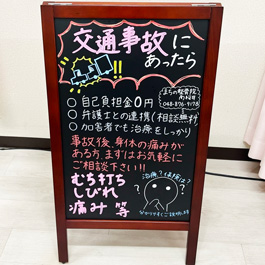 交通事故に
あったら
!!
まちの整骨院
〇自己負担金0円
〇弁護士との連携(相談無料)
〇加害者でも治療をしっかり
事故後、身体の痛みが
ある方、まずはお気軽に
ご相談下さい!!
むち打ち
しびれ
痛み 等
治療?保険は?
わかりやすくご説明